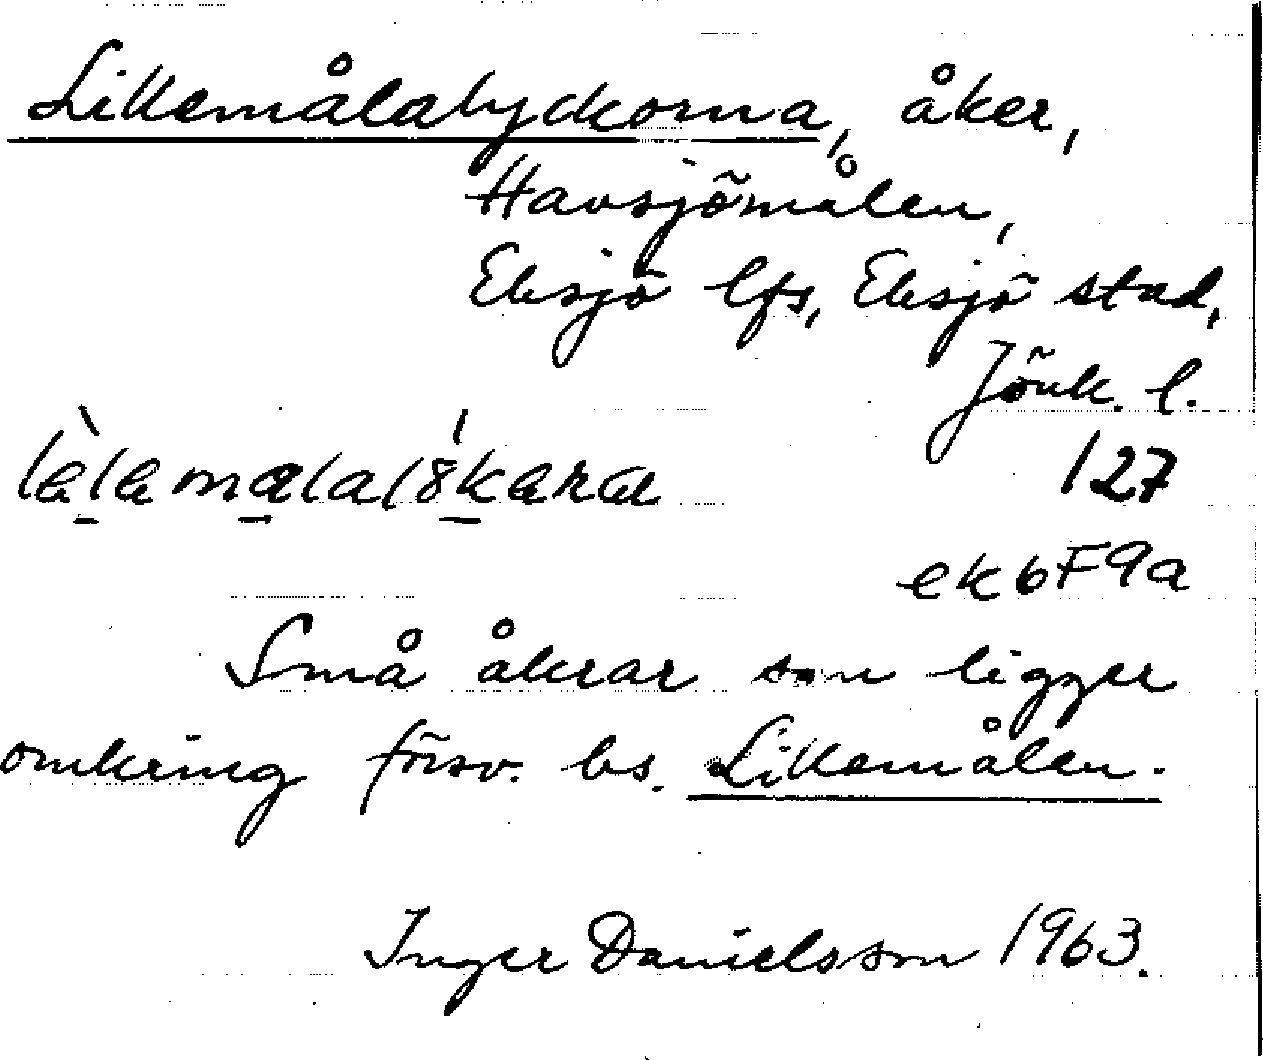 Lillemålalyckorna, åker,
Havsjömålen,
Eksjö lfs, Eksjö stad,
Jönk. l.
127
ek 6F9a
Små åkrar som ligger
omkring försv. bs. Lillemålen.
Inger Danielsson 1963.